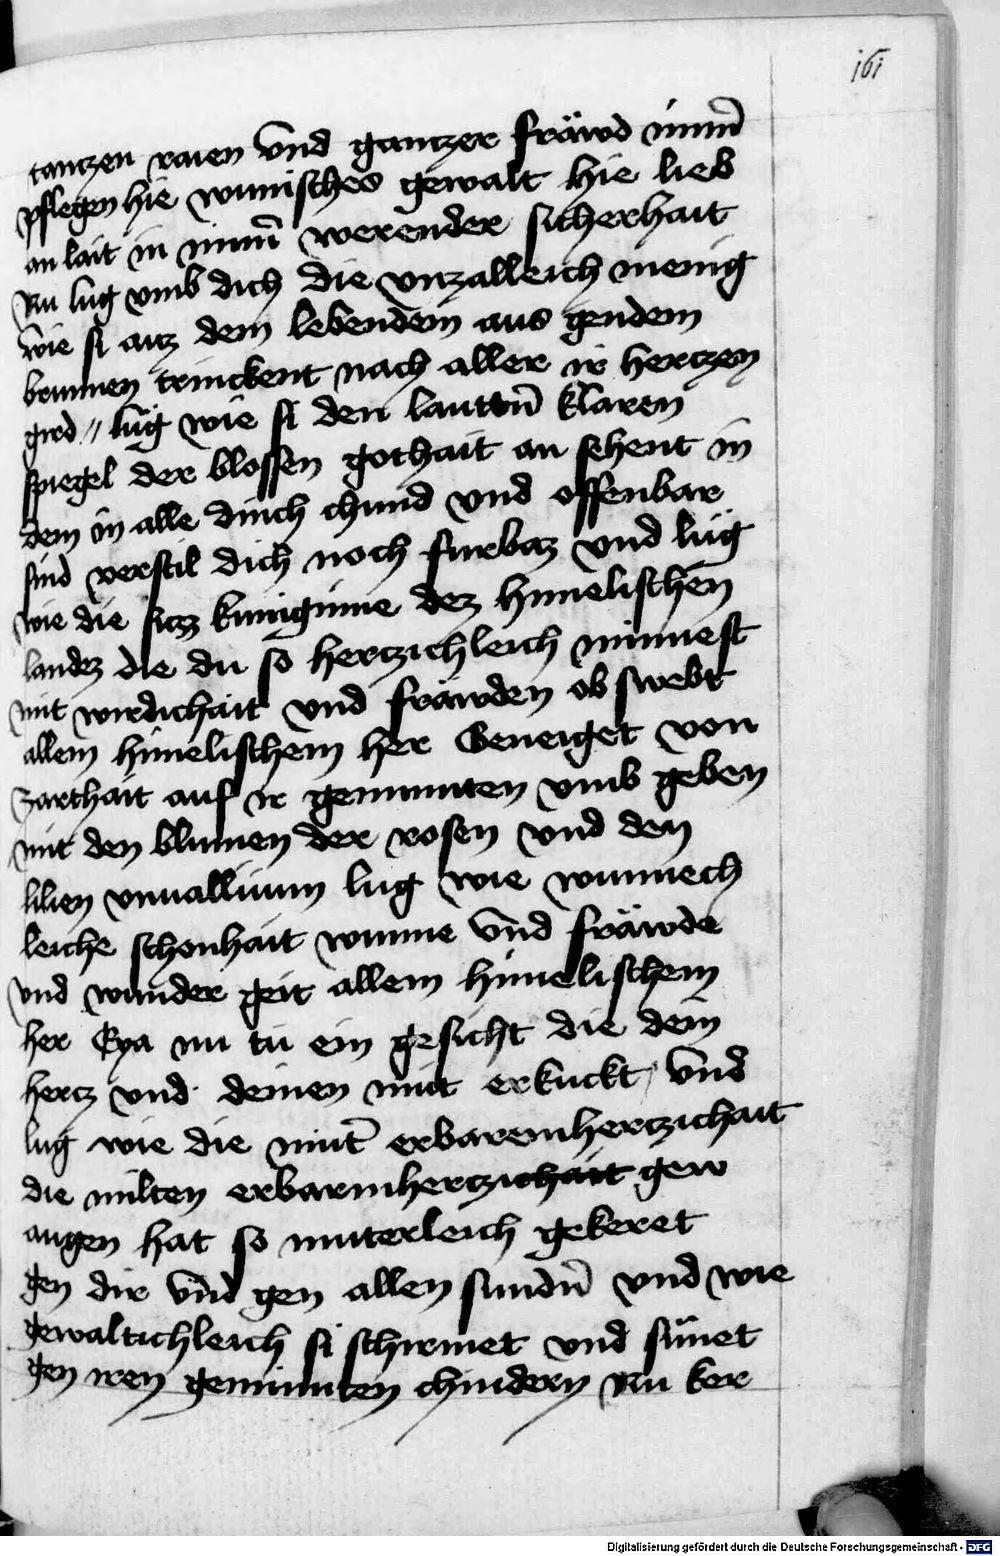 161
tantzen raien vnd gantzer fräwd immer̄
pflegen hie wunisches gewalt hie lieb
an lait in immer̄ werender sicherhait
Nu lug vmb dich die vnzalleich menig
wie si auz dem lebendem aus gendem
brunnen trinckent nach aller ir hertzen
gird // lüg wie si den lauttern̄ klaren
spiegel der blossen gothait an sehent in
dem in alle dinch chund vnd offenbar
sind verstil dich noch furbaz vnd lüg
wie die sitzz kuniginne dez himelischen
landez die du so hertzichleich minnest
mit wirdichait vnd fräwden ob swebt
allem himelischem her Geneiget von
zarthait auf ir gemunten vmb geben
mit den blumen der rosen vnd den
lilien vnuallium lug wie wunnech
leiche schonhait wunne vnd fräwde
vnd wunder geit allem himelischem
her Eya nu tü ein gesicht die dein
hertz vnd deinen müt erkuckt / vnd
lug wie die müt̄ erbaremhertzichait
die milten erbarmhertzichait gew
augen hat so muterleich gekeret
gen dir vnd gen allen sundn̄ vnd wie
gewaltichleich si schirmet vnd sünet
gen iren gemunten chindern Nu ker
Digitalisierung gefördert durch die Deutsche Forschungsgemeinschaft - DFG